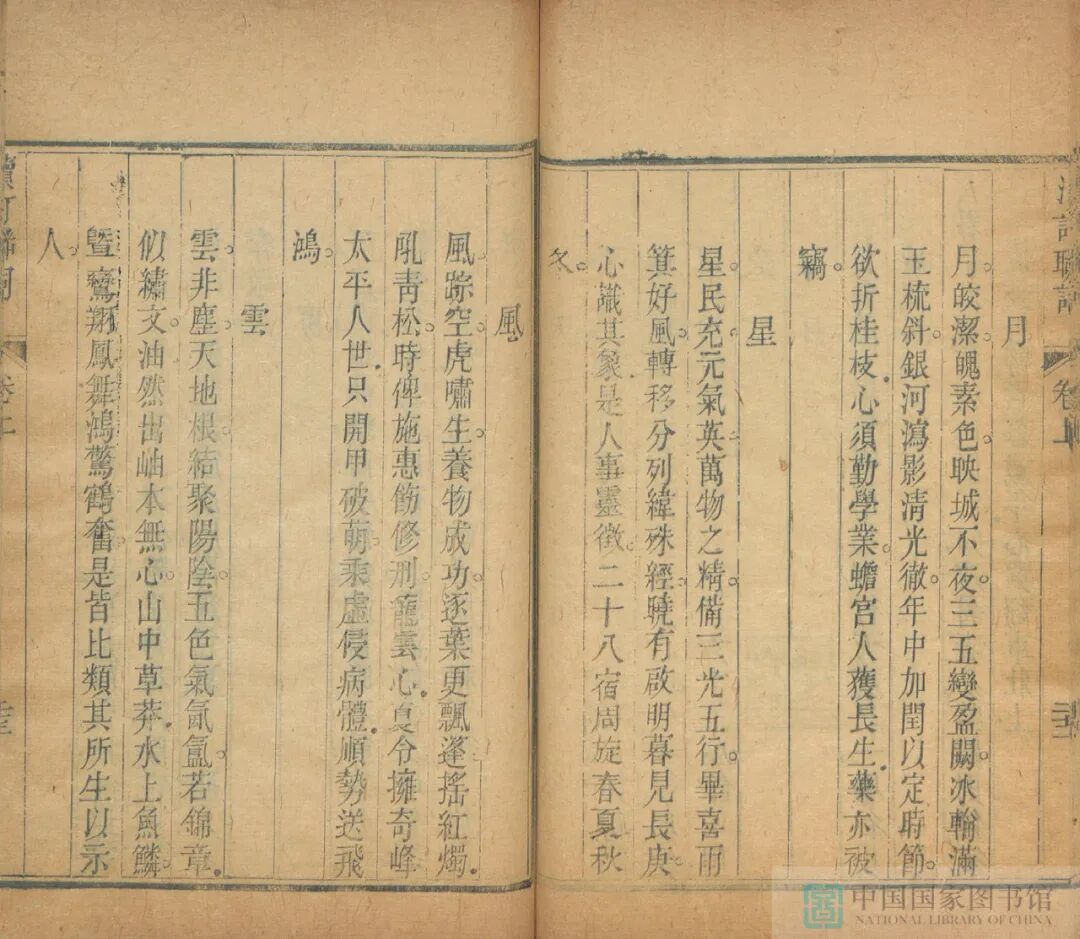 月
月。皎潔。魄素色。映城不夜。三五變盈闕。冰輪滿
玉梳斜。銀河瀉影清光徹。年中加閏以定時節。
欲折桂枝。心須勤學業。蟾宮人獲長生藥。亦被
竊。
星
星。民充。元氣英。萬物之精。備三光五行。畢喜雨
箕好風。轉移分列緯殊經。曉有啟明暮見長庚。
心識其象。是人事靈徵。二十八宿周旋春夏秋
冬。
卷上
風
風。踪空。虎嘯生。養物成功。逐葉更飄蓬。搖紅燭。
吼靑松。時俾施惠節修刑。蘢雲心。夏令擁奇峰
太平人世。只開甲破萌。乘虛侵病體。順勢送飛
鴻。
雲
雲。非塵。天地根。結聚陽陰。五色氣氤氳。若錦章。
似繡文。油然出岫本無心。山中草莽。水上魚鱗。
曁鸞翔鳳舞鴻驚鶴奮。是皆比類其所生以示
人。
中国国家图书馆
NATIONAL LIBRARY OF CHINA